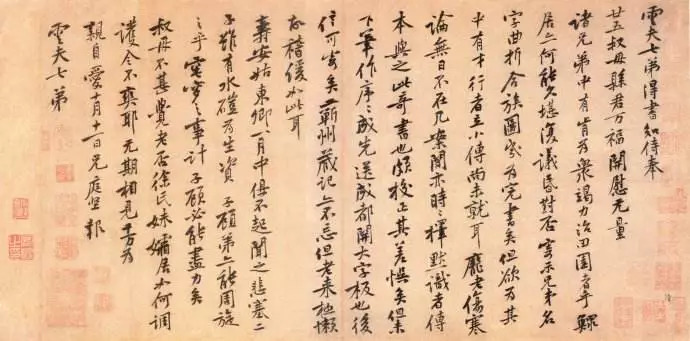 雲夫七弟得書知侍奉
廿五叔母縣君万福開慰无量
諸兄弟中有肯為衆竭力治田園者乎鰥
居亦何能久堪復議昏對否寄示兄弟名
字曲折合族圖幾為完書矣但欲為其
中有才行者立小傳尚未就耳龐老傷寒
論無日不在几案間亦時〻擇默識者傳
本與之此奇書也頗校正其差悮矣但未
下筆作序〻成先送成都開大字板也後
信可寄矣蘄州藏記亦不忘但老来極懶
故稽緩如此耳
壽安姑東卿一月中俱不起聞之悲塞二
子雖有水磑為生資子顧弟亦能周旋
之乎窀穸之事計子顧必能盡力矣
叔母不甚覺老否徐氏妹孀居如何調
護令不爽耶无期相見千万為
親自愛十月十一日兄庭堅報
雲夫七弟